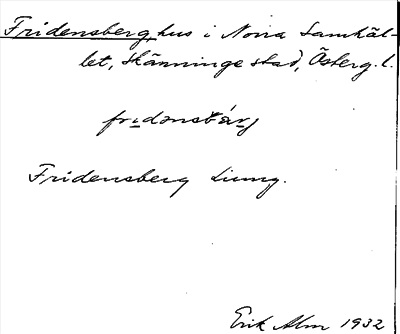 Fridensberg, hus i Norra Samhäl-
let, Skänninge stad, Österg. l.
fridənsbárj
Fridensberg Liung.
Erik Alm 1932